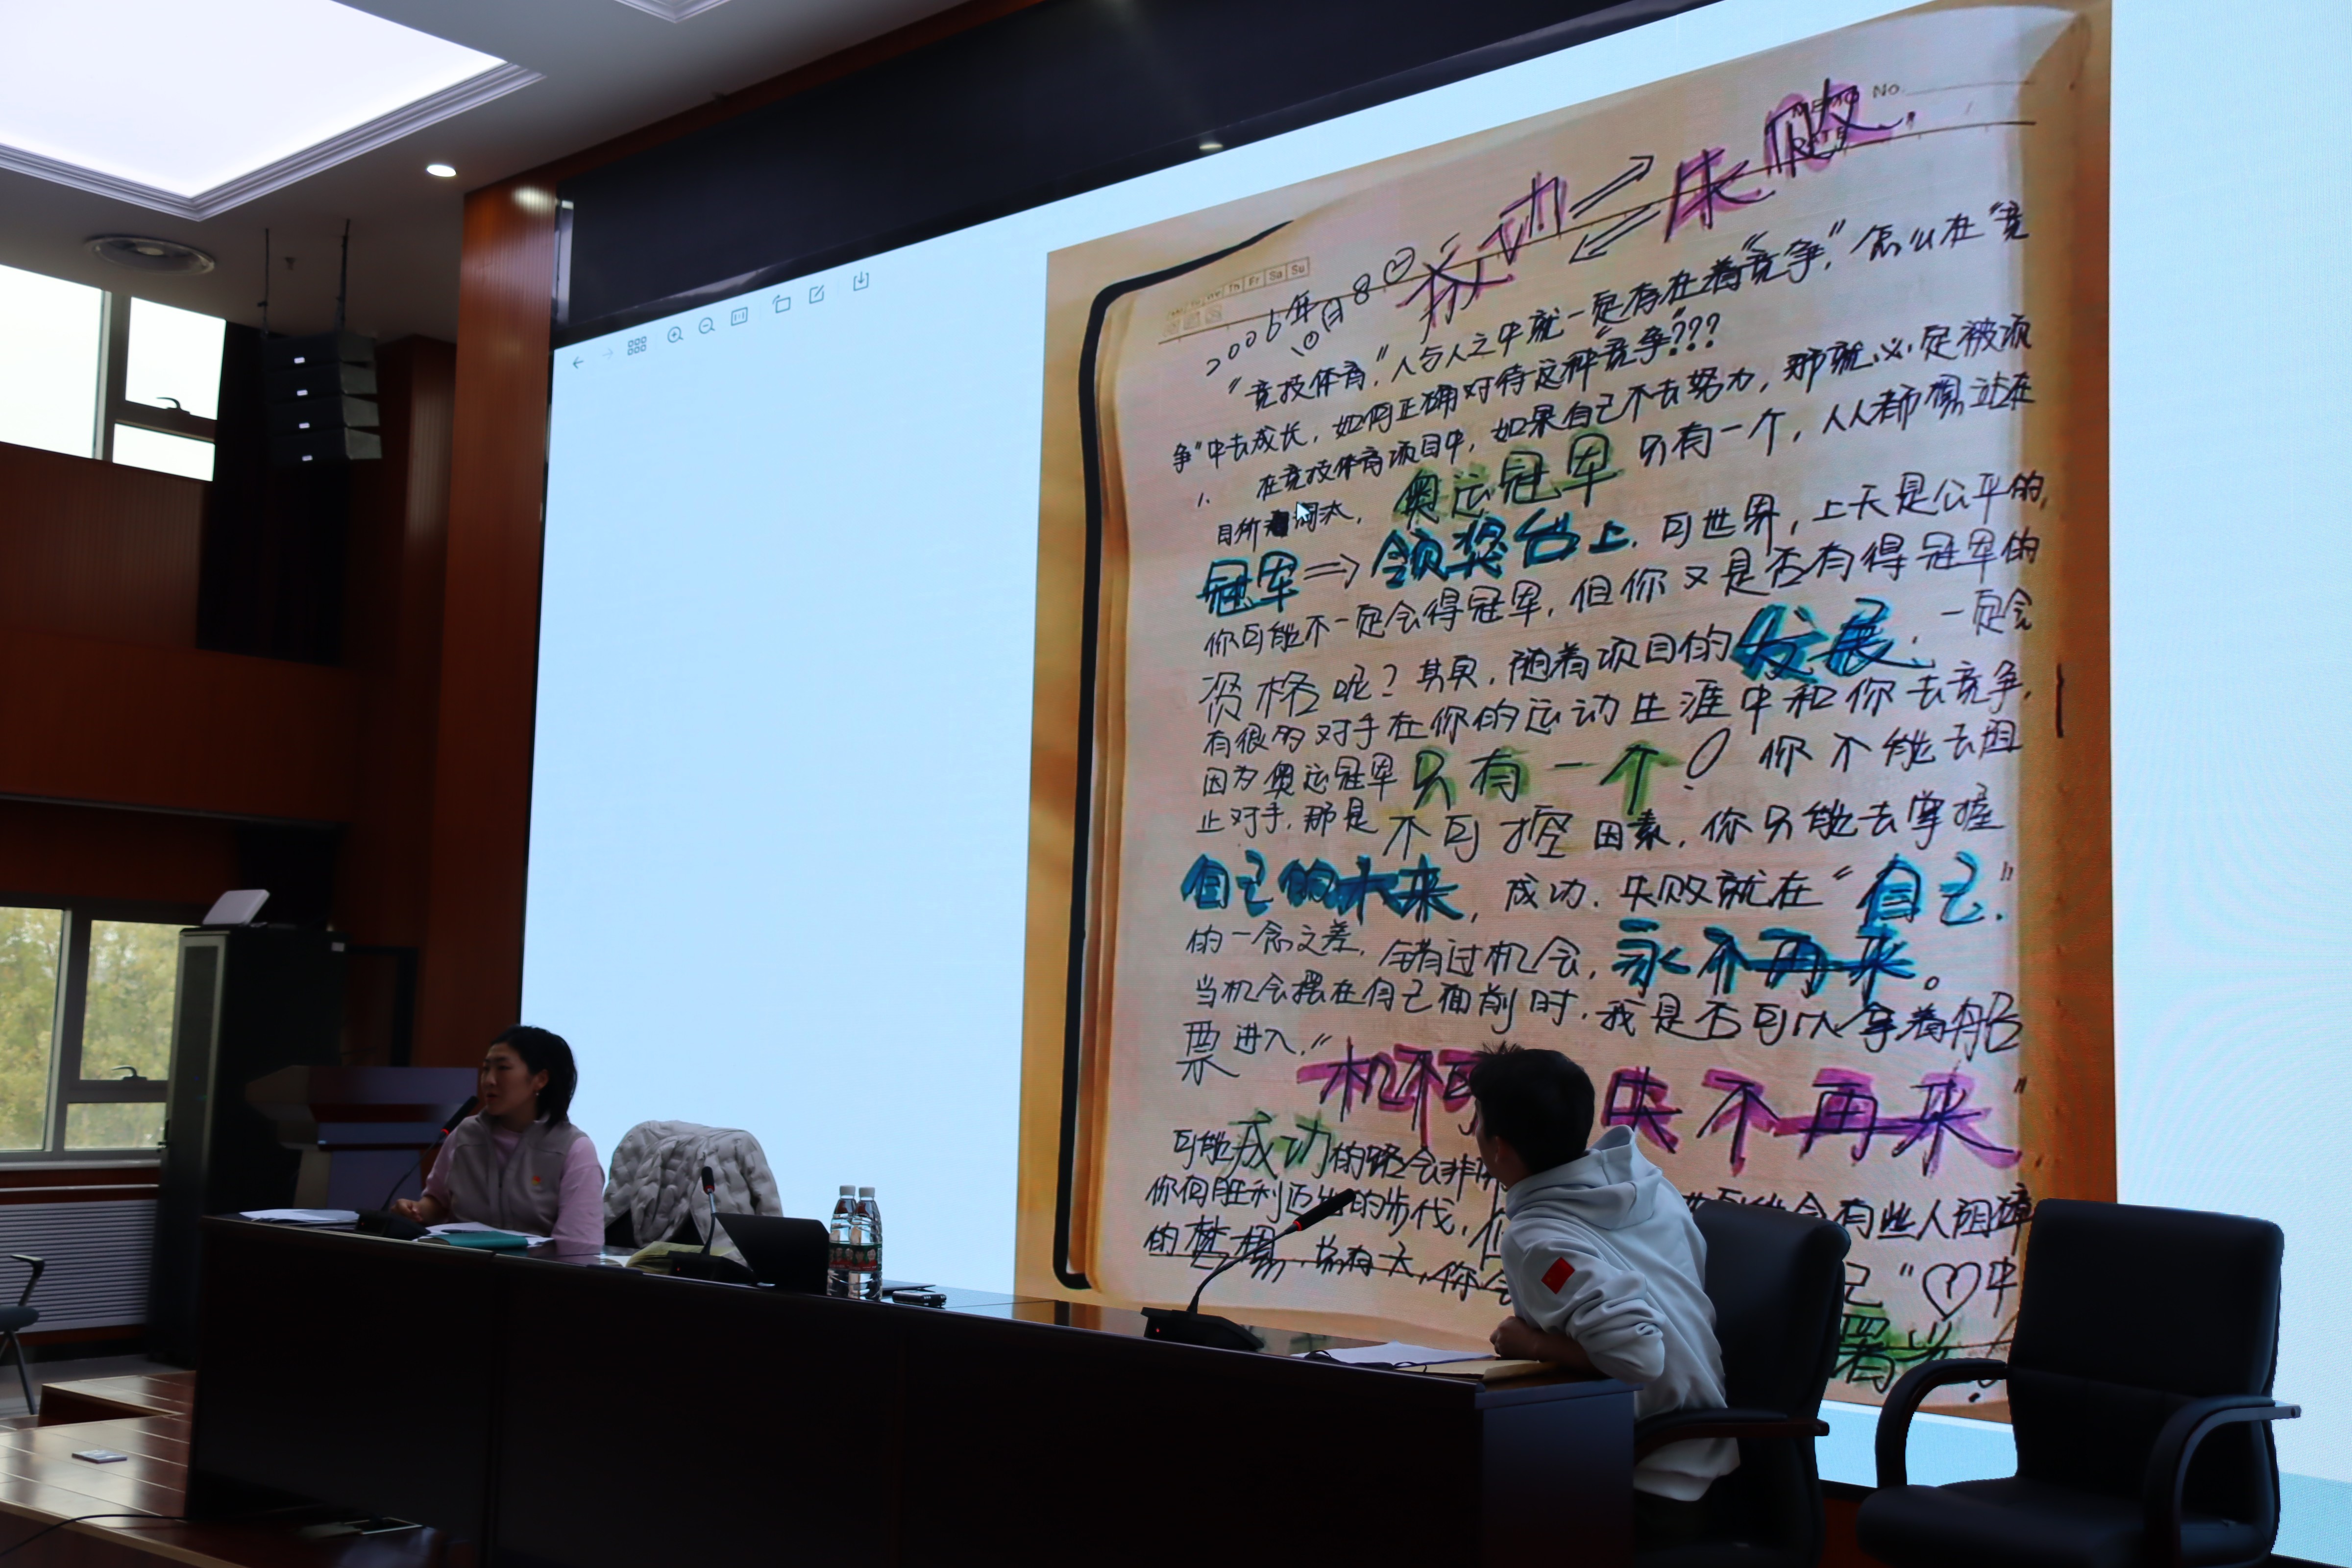 MEMO No.
DATE
Th Fr Sa Su
成功 失败
2006年10月8
"竞技体育,"人与人之中就一定存在着"竞争,"怎么在"竞
争"中去成长,如何正确对待这种"竞争"???
1. 在竞技体育项目中,如果自己不去努力,那就必定被项
目所淘汰,奥运冠军只有一个,人人都想站在
冠军⇒领奖台上.可世界,上天是公平的,
你可能不一定会得冠军,但你又是否有得冠军的
资格呢?其实,随着项目的发展,一定会
有很多对手在你的运动生涯中和你去竞争,
因为奥运冠军只有一个!你不能去阻
止对手,那是不可控因素,你只能去掌握
自己的未来,成功.失败就在"自己"
的一念之差,错过机会,永不再来。
当机会摆在自己面前时,我是否可以拿着船
票进入."
机不可 失不再来"
可能成功的路会非
你向胜利迈出的步代, 可能会有些人阻碍
的梦想,总有一天,你会 己"♡中